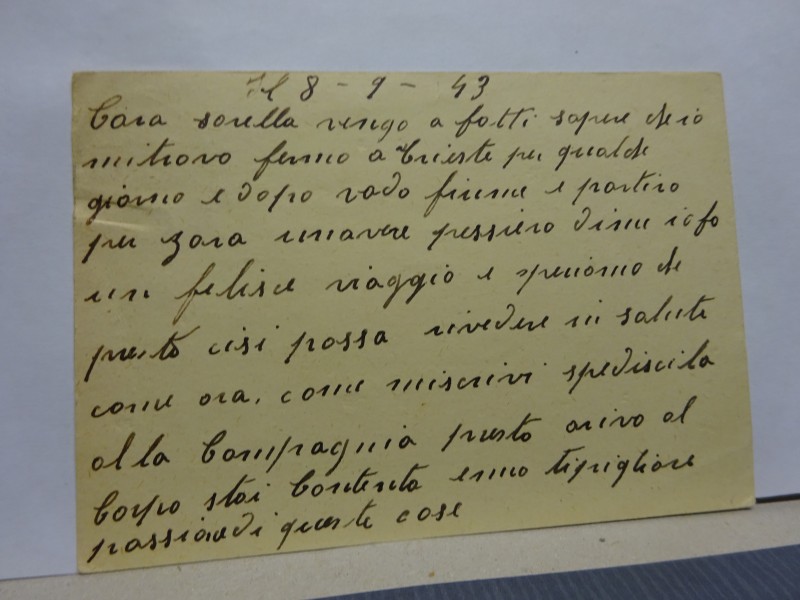 Il 8 - 9 - 43
Cara sorella vengo a farti sapere che io
mitrovo fermo a Trieste per qualche
giorno e dopo vado fiume e partiro
per zara unavere pessiero dime iofo
un felisce viaggio e speriamo che
presto cisi possa rivedere in salute
come ora. come miscrivi spediscila
alla Compagnia presto arivo al
Corpo stai Contenta enno tipigliare
passione di queste cose